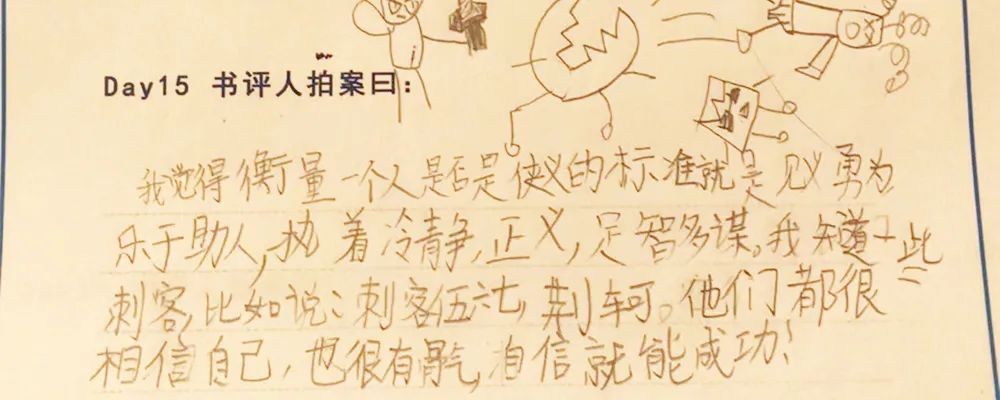 Day15 书评人拍案曰：
我觉得衡量一个人是否是侠义的标准就是见义勇为
乐于助人,执着冷静,正义,足智多谋。我知道一些
刺客,比如说：刺客伍六七,荆轲。他们都很
相信自己,也很有骨气,自信就能成功!